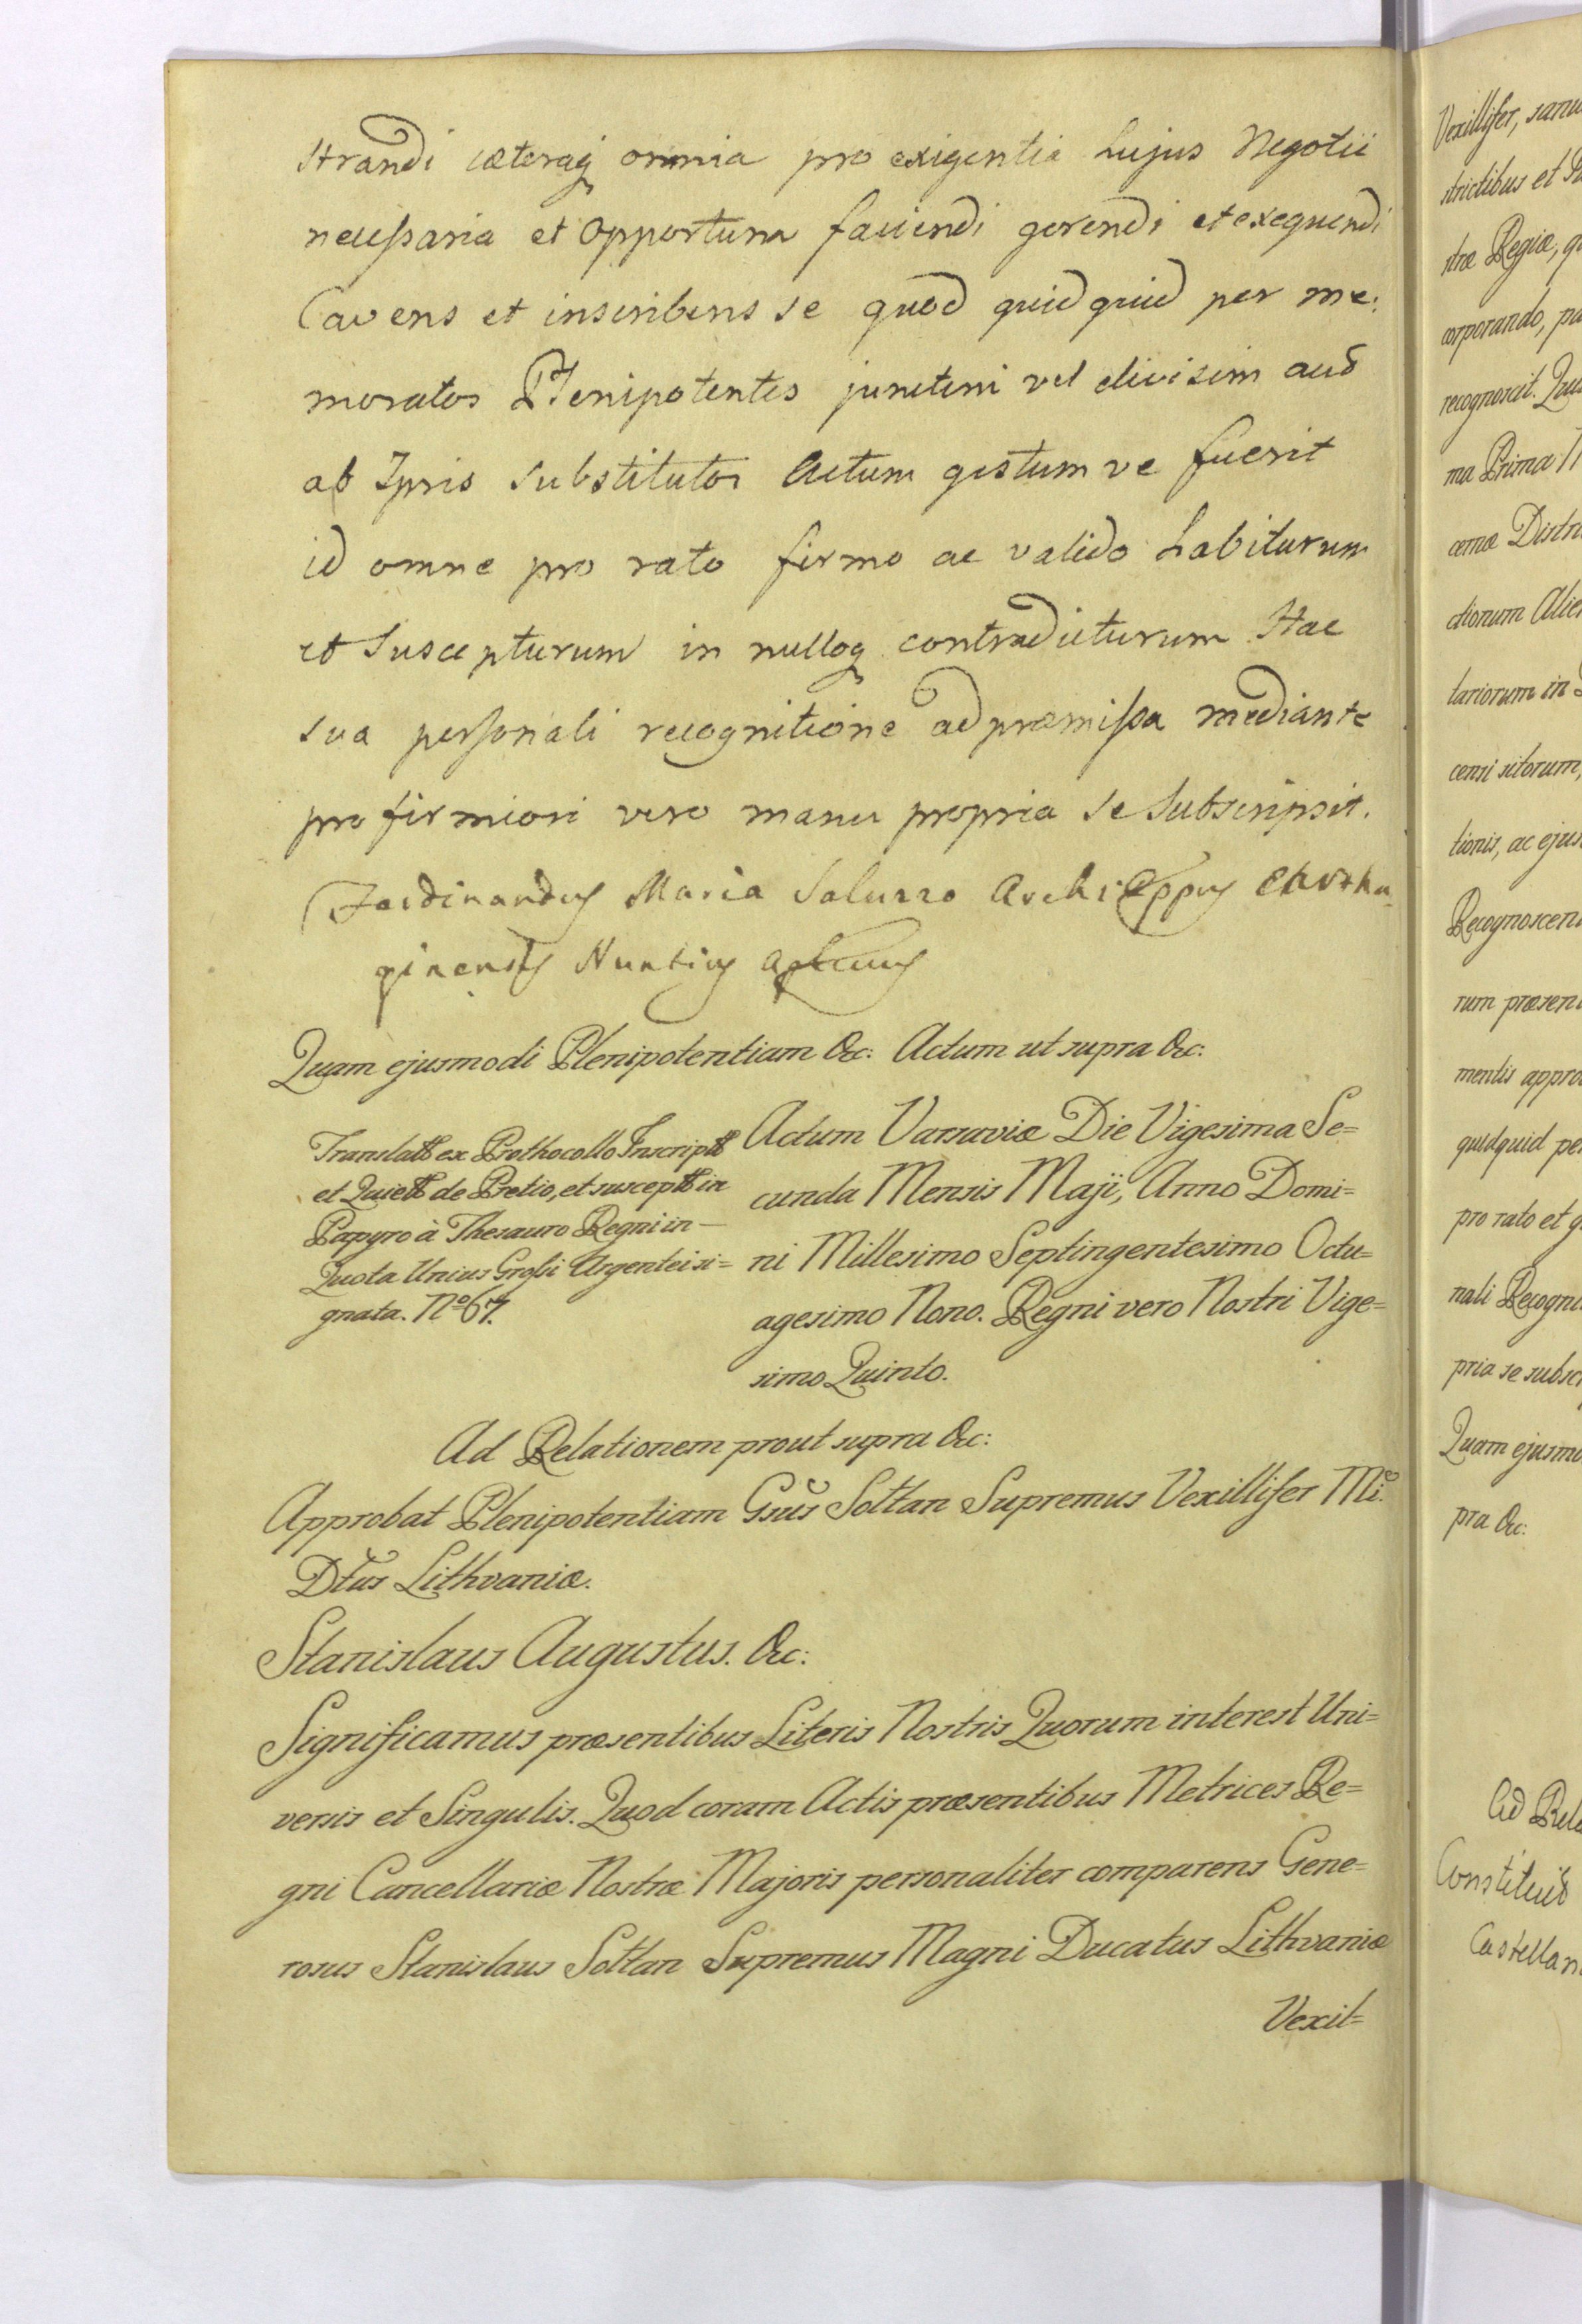 strandi cæteraq omnia pro exigentia hujus Negotii
necessaria et opportuna faciendi gerendi et exequendi
Cavens et inscribens se quod quidquid per me:
moratos Plenipotentes junctim vel divisim aut
ab Ipsis substitutos Actum gestum ve fuerit
id omne pro rato firmo ac valido habiturum
et suscepturum in nulloq contradicturum Hac
sua personali recognitione ad præmissa mediante
pro firmiori vero manu propria se subscripsit.
Ferdinandus Maria Saluzzo Archieppus Chartha-
ginensis Nuntius Aplicus
Quam ejusmodi Plenipotentiam &c: Actum ut supra &c:
Translatt ex Prothocollo Inscriptt
et Quiett de Pretio, et susceptt in
Papyro à Thesauro Regni in—
Quota Unius Grossi Argentei si=
gnata. No 67.
Actum Varsaviæ Die Vigesima Se=
cunda Mensis Maji, Anno Domi=
ni Millesimo Septingentesimo Octu=
agesimo Nono. Regni vero Nostri Vige=
simo Quinto.
Ad Relationem prout supra &c:
Approbat Plenipotentiam Gsus Sołtan Supremus Vexillifer Mi.
Dtus Lithvaniæ.
Stanislaus Augustus. &c:
Significamus præsentibus Literis Nostris Quorum interest Uni=
versis et Singulis. Quod coram Actis præsentibus Metrices Re=
gni Cancellariæ Nostræ Majoris personaliter comparens Gene=
rosus Stanislaus Sołtan Supremus Magni Ducatus Lithvaniæ
Vexil=
Vexillifer,
strictibus et
stræ Regiæ,
corporando,
recognoscit.
ma Prima
cernæ
ctionum
tariorum in
censi sitorum,
tionis, ac
Recognoscen
rum præsen
mentis appro
quidquid pe
pro rato et
nali Recogni
pria se subsc
Quam ejusmo
pra &c:
Ad Rela
Constituit
Castellan